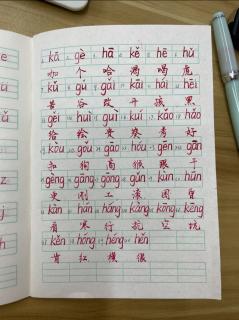 kā gè hā kě hē hǔ
咖 个 哈 渴 喝 虎
kǔ gǔ gǎi kāi hái hēi
苦 谷 改 开 孩 黑
gěi huì guì kuí kǎo hǎo
给 绘 贵 葵 考 好
kòu gǒu gāo hóu gēn gān
扣 狗 高 猴 跟 干
gèng gāng gōng gǔn kùn hūn
更 刚 工 滚 困
kàn hán háng kàng kōng kēng
看 寒 行 抗 空 坑
kěn hóng héng hěn
肯 红 横 很